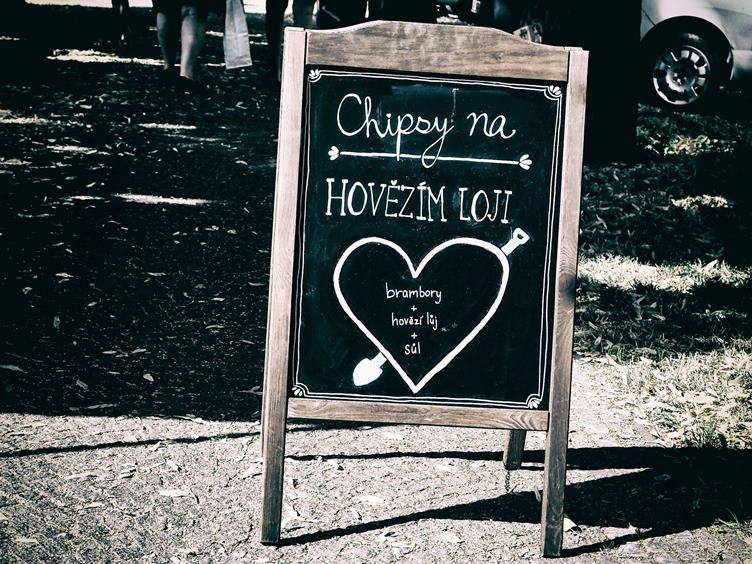 Chipsy na
HOVĚZÍM LOJI
brambory
+
hovězí lůj
+
sůl